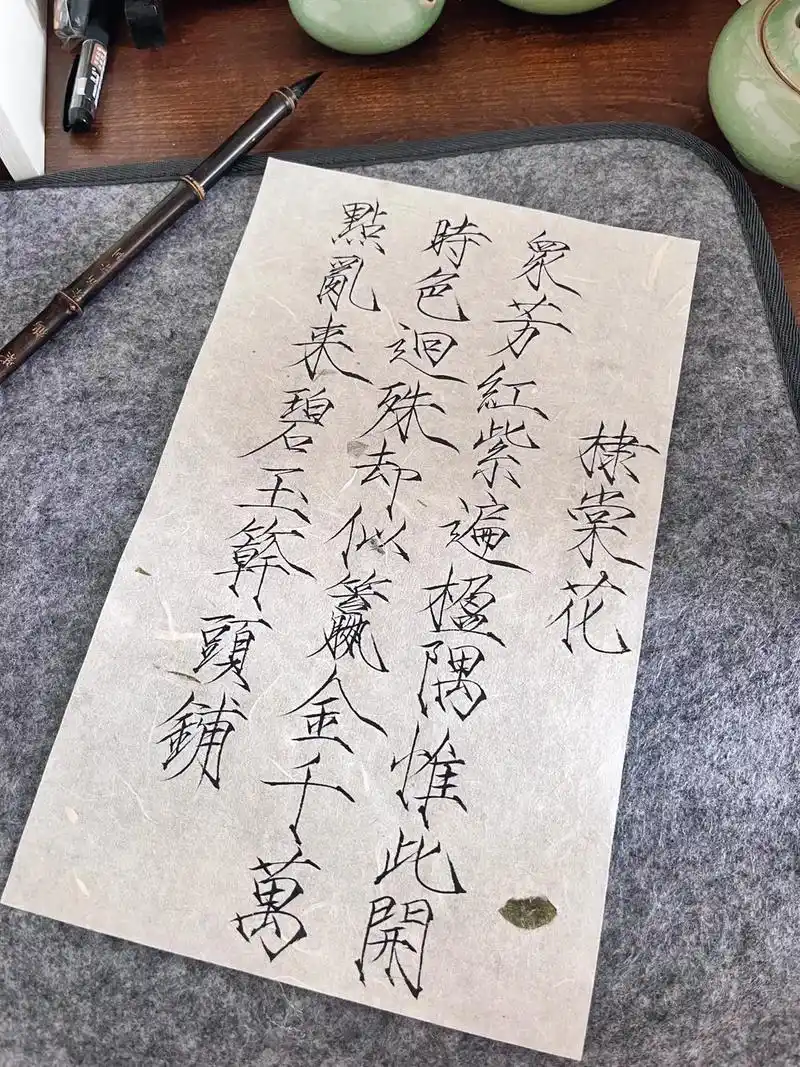 棣棠花
衆芳紅紫遍楹隅惟此開
時色迥殊却似籯金千萬
點亂来碧玉簳頭鋪